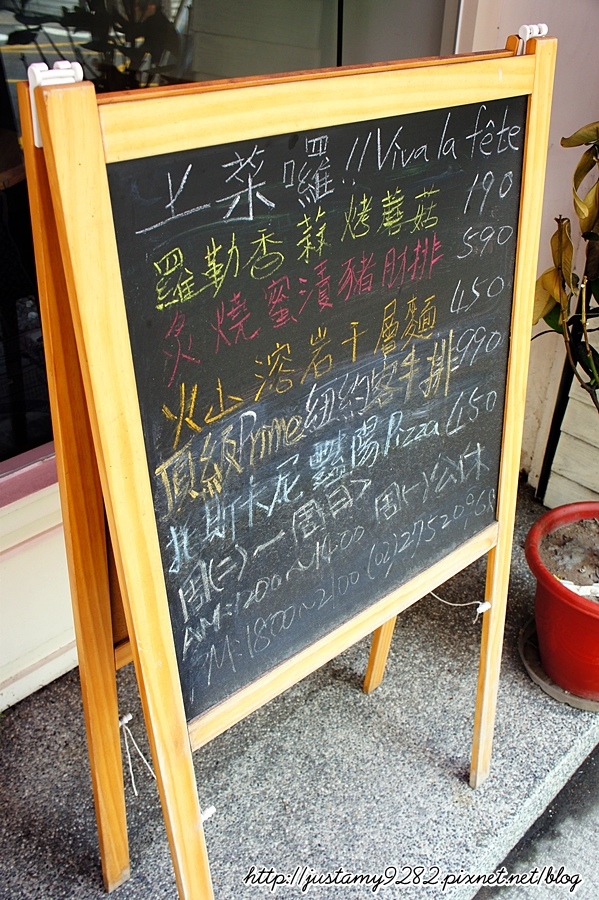 上菜囉!! Viva la fête
羅勒香蒜烤蘑菇 190
炙燒蜜漬豬肋排 590
火山溶岩千層麵 450
頂級Prime紐約客牛排 990
托斯卡尼豔陽Pizza 450
周(二)~周日> 周(一)公休
AM:1200~14:00 (02)27520968
PM:1800~2100
http://justamy9282.pixnet.net/blog